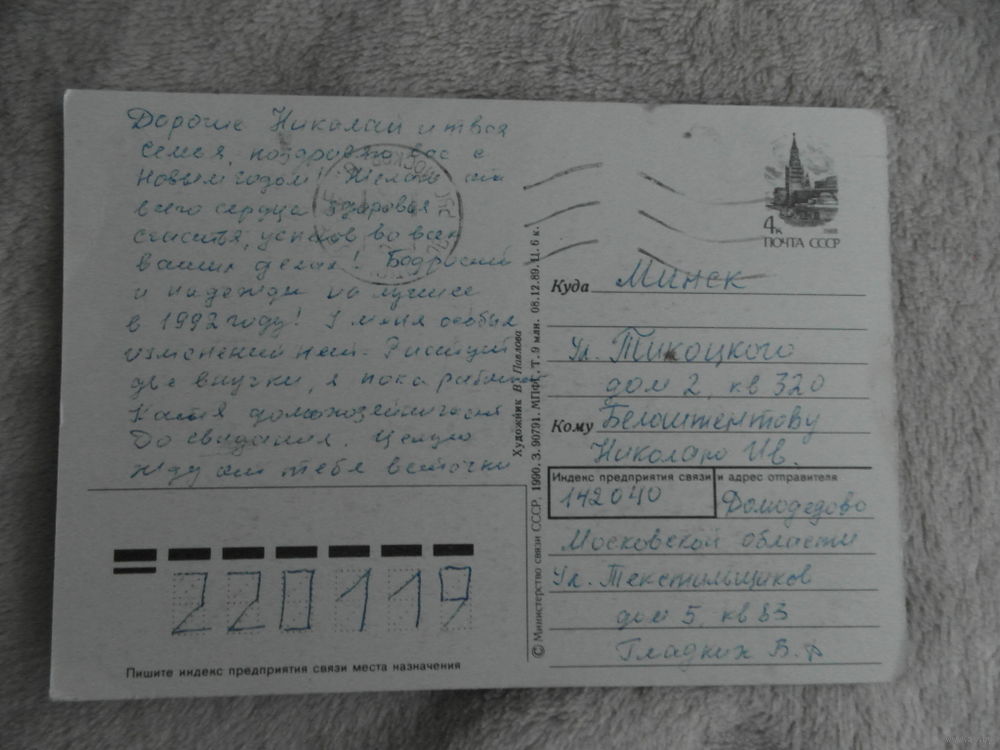 Дорогие Николай и твоя
семья, поздравляю вас с
Новым годом! Желаю от
всего сердца здоровья
счастья, успехов во всех
ваших делах! Бодрости
и надежды на лучшее
в 1992 году! У меня особых
изменений нет. Растут
две внучки, я пока работаю
Катя домохозяйничает
До свидания. Целую
жду от тебя весточки
Пишите индекс предприятия связи места назначения
220119
© Министерство связи СССР, 1990. З. 90791. МПФГ. Т. 9 млн. 08.12.89. Ц. 6 к.
Художник В. Павлова
4к
ПОЧТА СССР
Куда Минск
Ул. Тикоцкого
дом 2, кв 320
Кому Белоштентову
Николаю Ив.
Индекс предприятия связи и адрес отправителя
142040 Домодедово
Московской области
Ул. Текстильщиков
дом 5, кв 83
Гладких В.